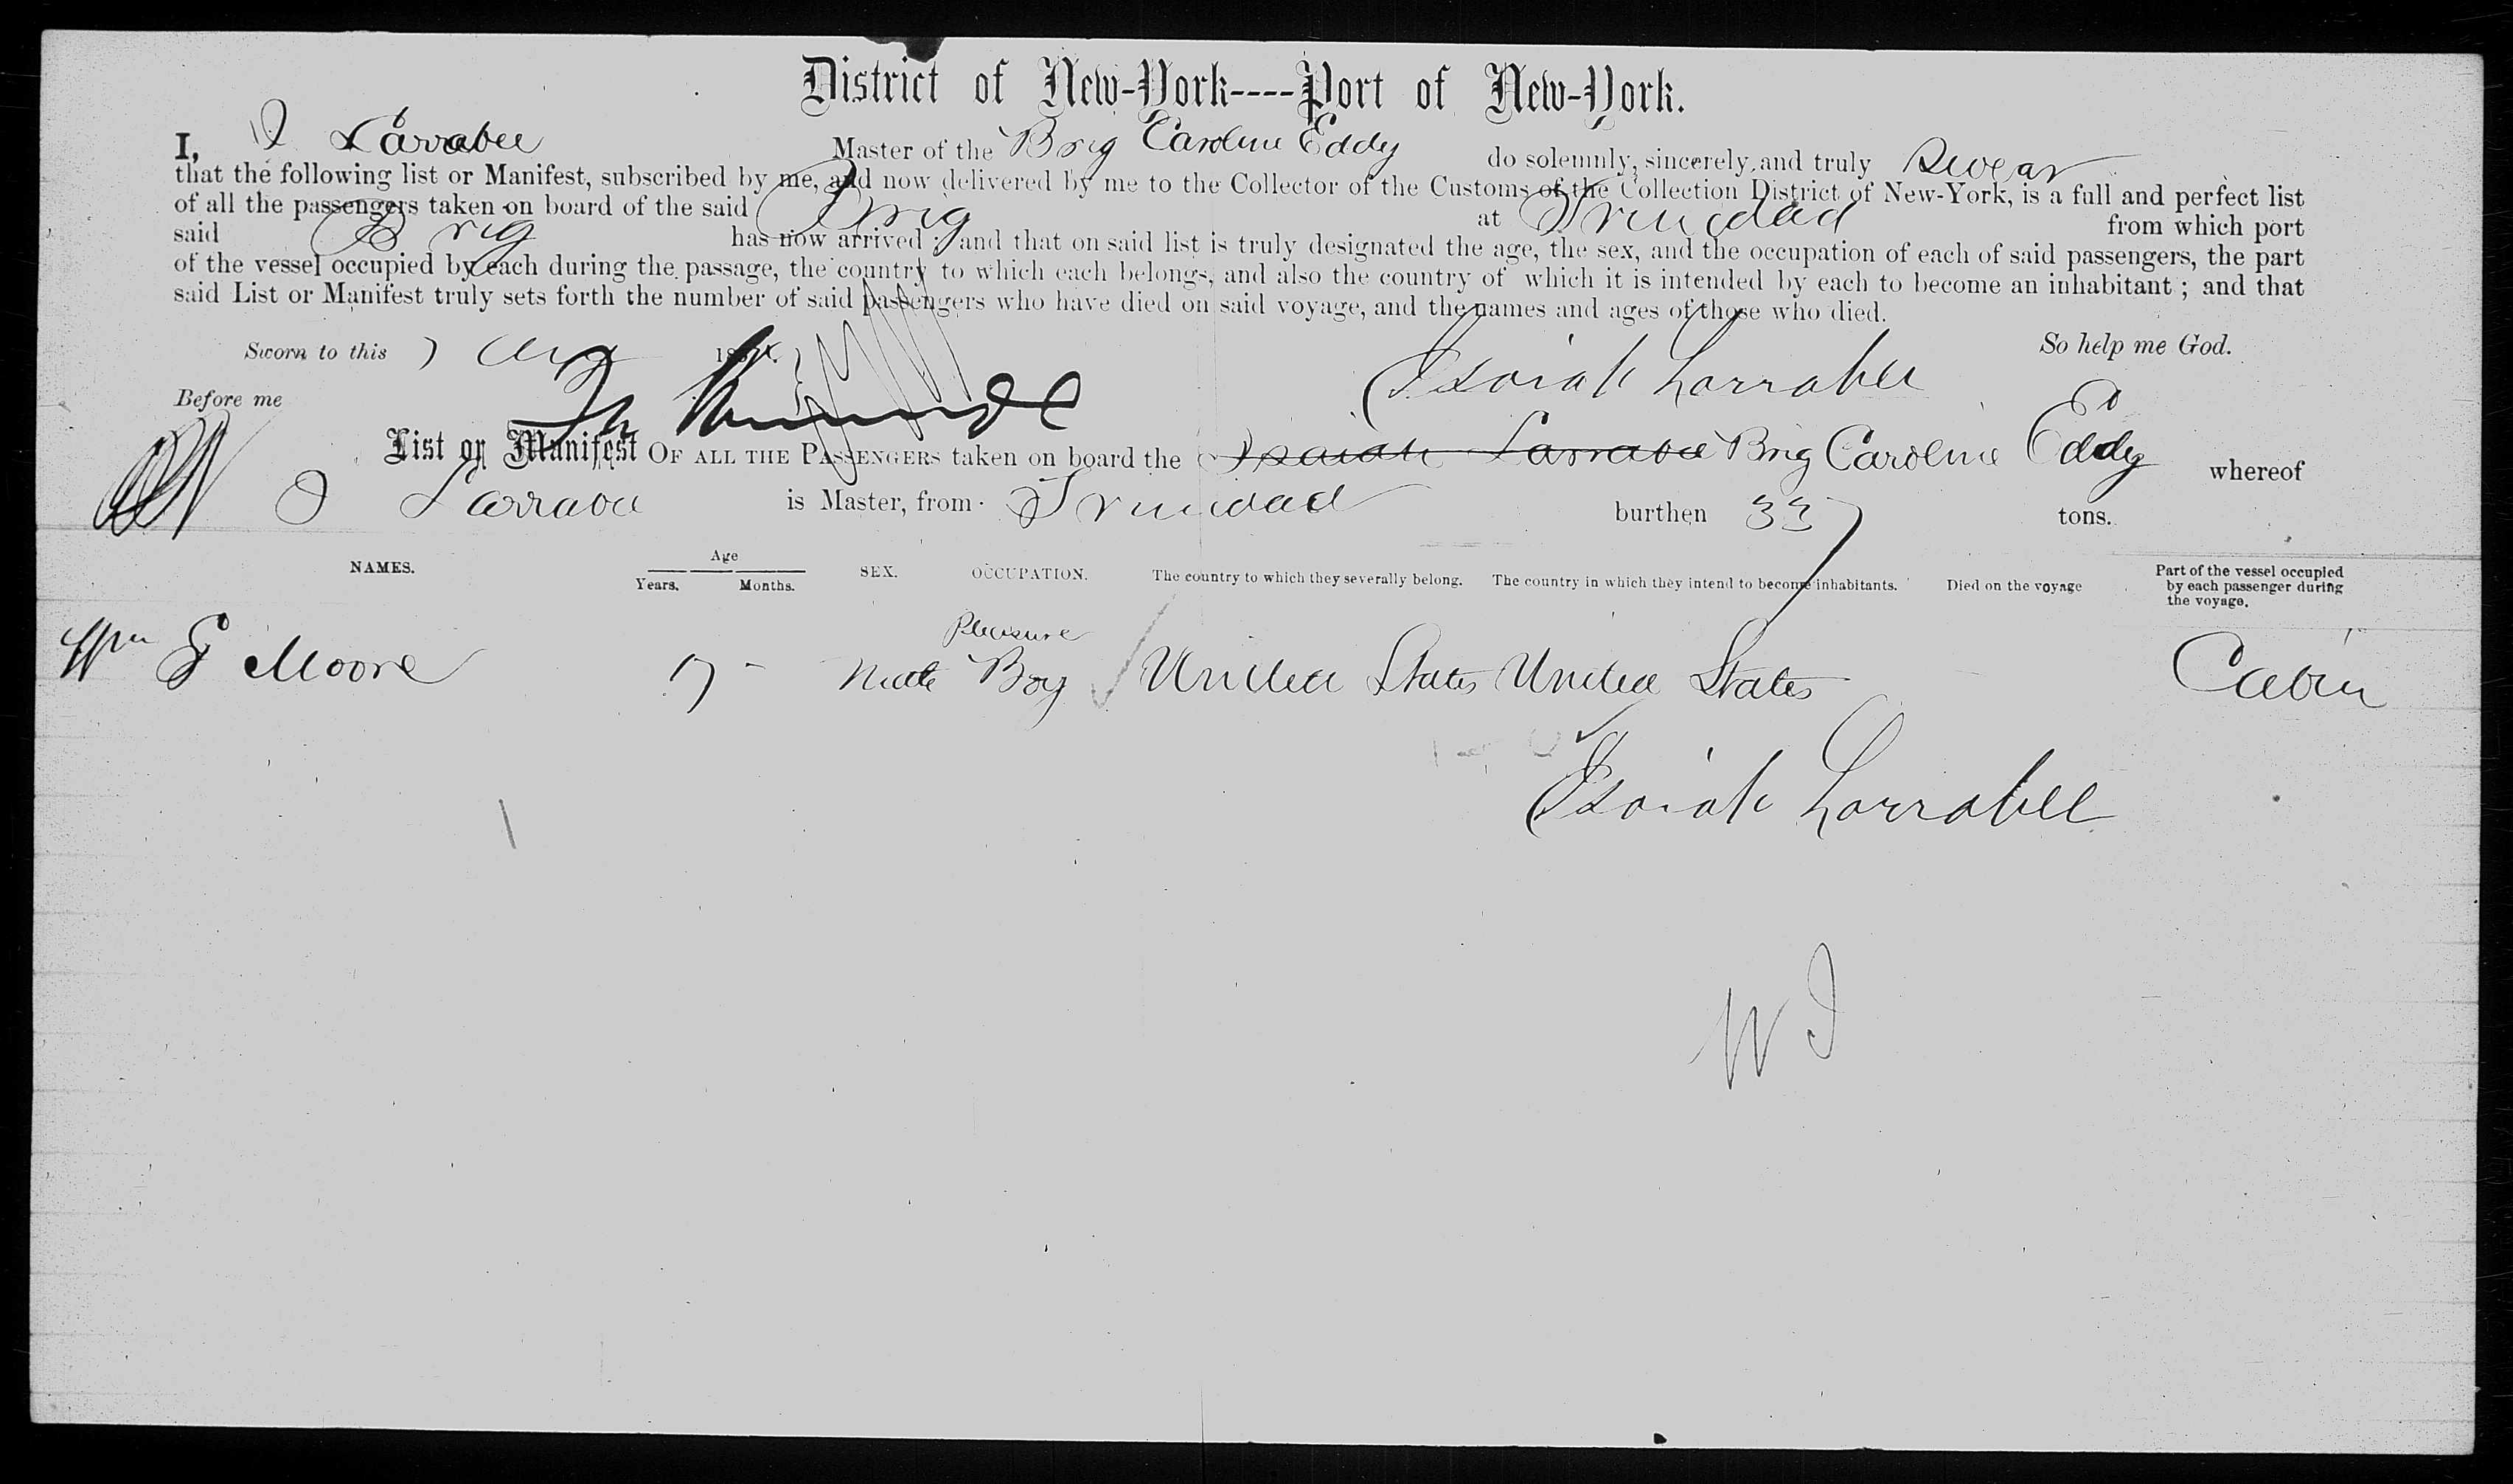 District of New-York----Port of New-York.
I, I Larrabee Master of the Brig Caroline Eddy do solemnly, sincerely, and truly Swear
that the following list or Manifest, subscribed by me, and now delivered by me to the Collector of the Customs of the Collection District of New-York, is a full and perfect list
of all the passengers taken on board of the said Brig at Trinidad from which port
said Brig has now arrived; and that on said list is truly designated the age, the sex, and the occupation of each of said passengers, the part
of the vessel occupied by each during the passage, the country to which each belongs, and also the country of which it is intended by each to become an inhabitant; and that
said List or Manifest truly sets forth the number of said passengers who have died on said voyage, and the names and ages of those who died.
Sworn to this 7 Aug So help me God.
Isaiah Larrabee
Before me
List or Manifest OF ALL THE PASSENGERS taken on board the Isaiah Larrabee Brig Caroline Eddy whereof
I Larrabee is Master, from Trinidad burthen 337 tons.
NAMES. Age Years. Months. SEX. OCCUPATION. The country to which they severally belong. The country in which they intend to become inhabitants. Died on the voyage Part of the vessel occupied by each passenger during the voyage.
Pleasure
Wm Moore 17 - Male Boy United States United States Cabin
Isaiah Larrabee
W I